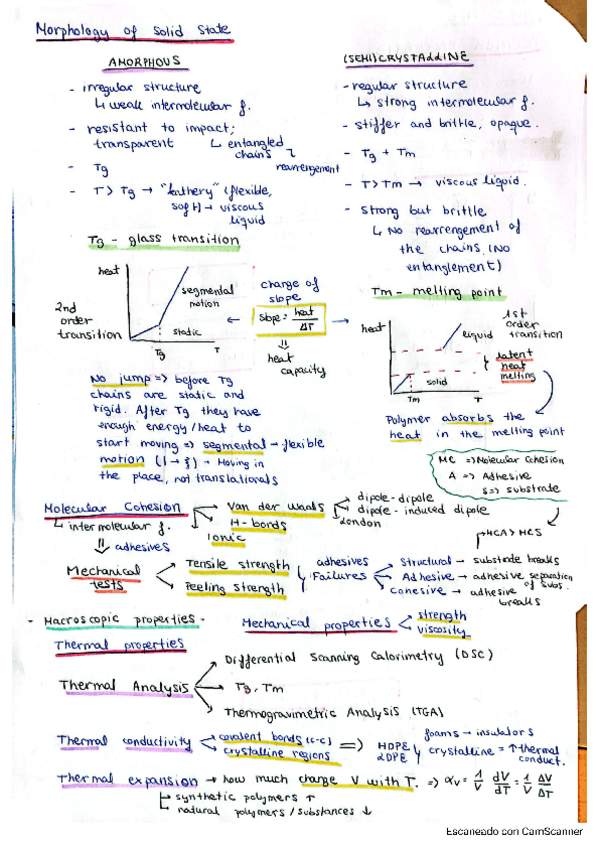 Morphology of Solid State
AMORPHOUS
- irregular structure
↳ weak intermolecular f.
- resistant to impact;
transparent ↳ entangled
chains ↴
rearrangement
- Tg
- T > Tg → "leathery" (flexible,
soft) → viscous
liquid
Tg - glass transition
heat
segmental
motion
static
Tg
T
2nd
order
transition
(SEMI)CRYSTALLINE
- regular structure
↳ strong intermolecular f.
- stiffer and brittle, opaque.
- Tg + Tm
- T > Tm → viscous liquid.
- Strong but brittle
↳ No rearrengement of
the chains (No
entanglement)
Tm - melting point
change of
slope
← slope = heat/ΔT →
⇓
heat
capacity
heat
liquid
solid
Tm
T
1st
order
transition
latent
heat
melting
No jump => before Tg
chains are static and
rigid. After Tg they have
enough energy/heat to
start moving => segmental → flexible
motion
→ Moving in
the place, not translationals
Polymer absorbs the
heat in the melting point
MC => Molecular Cohesion
A => Adhesive
S => substrate
Molecular Cohesion
↳ intermolecular f.
Van der Waals
H-bonds
Ionic
dipole-dipole
dipole-induced dipole
London
⇓ adhesives
Mechanical
tests
Tensile strength
Peeling strength
adhesives
Failures
MCA > MCS
Structural → substrate breaks
Adhesive → adhesive separation
of subs.
Cohesive → adhesive
breaks
- Macroscopic properties -
Mechanical properties
strength
viscosity
Thermal properties
Thermal Analysis
Differential Scanning Calorimetry (DSC)
Tg, Tm
Thermogravimetric Analysis (TGA)
Thermal conductivity
covalent bonds (C-C)
crystalline regions
=> HDPE
LDPE
foams → insulators
crystalline = ↑ thermal
conduct.
Thermal expansion → how much change V with T. => αv = 1/V dV/dT = 1/V ΔV/ΔT
↳ synthetic polymers ↑
↳ natural polymers/substances ↓
Escaneado con CamScanner